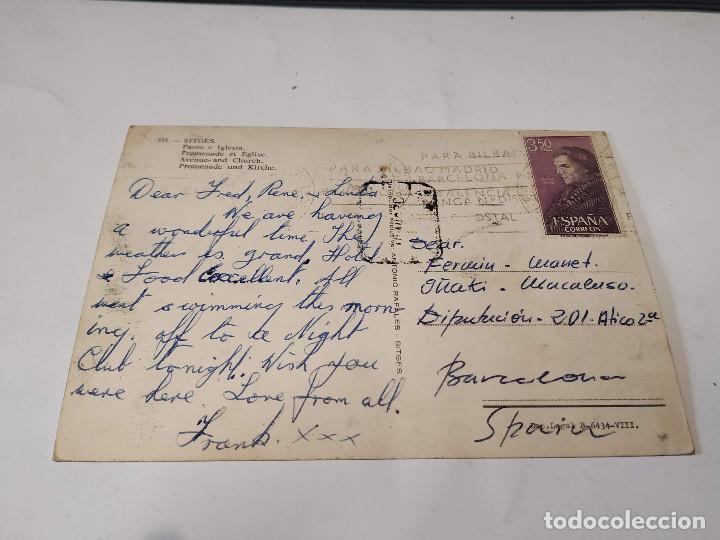 321. — SITGES.
Paseo e Iglesia.
Promenade et Eglise.
Avenue-and Church.
Promenade und Kirche.
Dear Fred, Rene, & Linda
We are having
a wonderful time. The
weather is grand. Hotel
& Food Excellent. All
went swimming this morn
ing. off to a Night
Club tonight! Wish you
were here. Love from all.
Frank. xxx
ANTONIO RAFALES - SITGES
PARA BILBAO
PARA BILBAO MADRID
BARCELONA
VALENCIA
POSTAL
3,50
ESPAÑA
CORREOS
Dear.
Fermin - Manet.
Iñaki - Macaluso.
Diputación - 201 - Atico 2ª
Barcelona
Spain
Dep. Legal B-6434-VIII.
todocoleccion.net